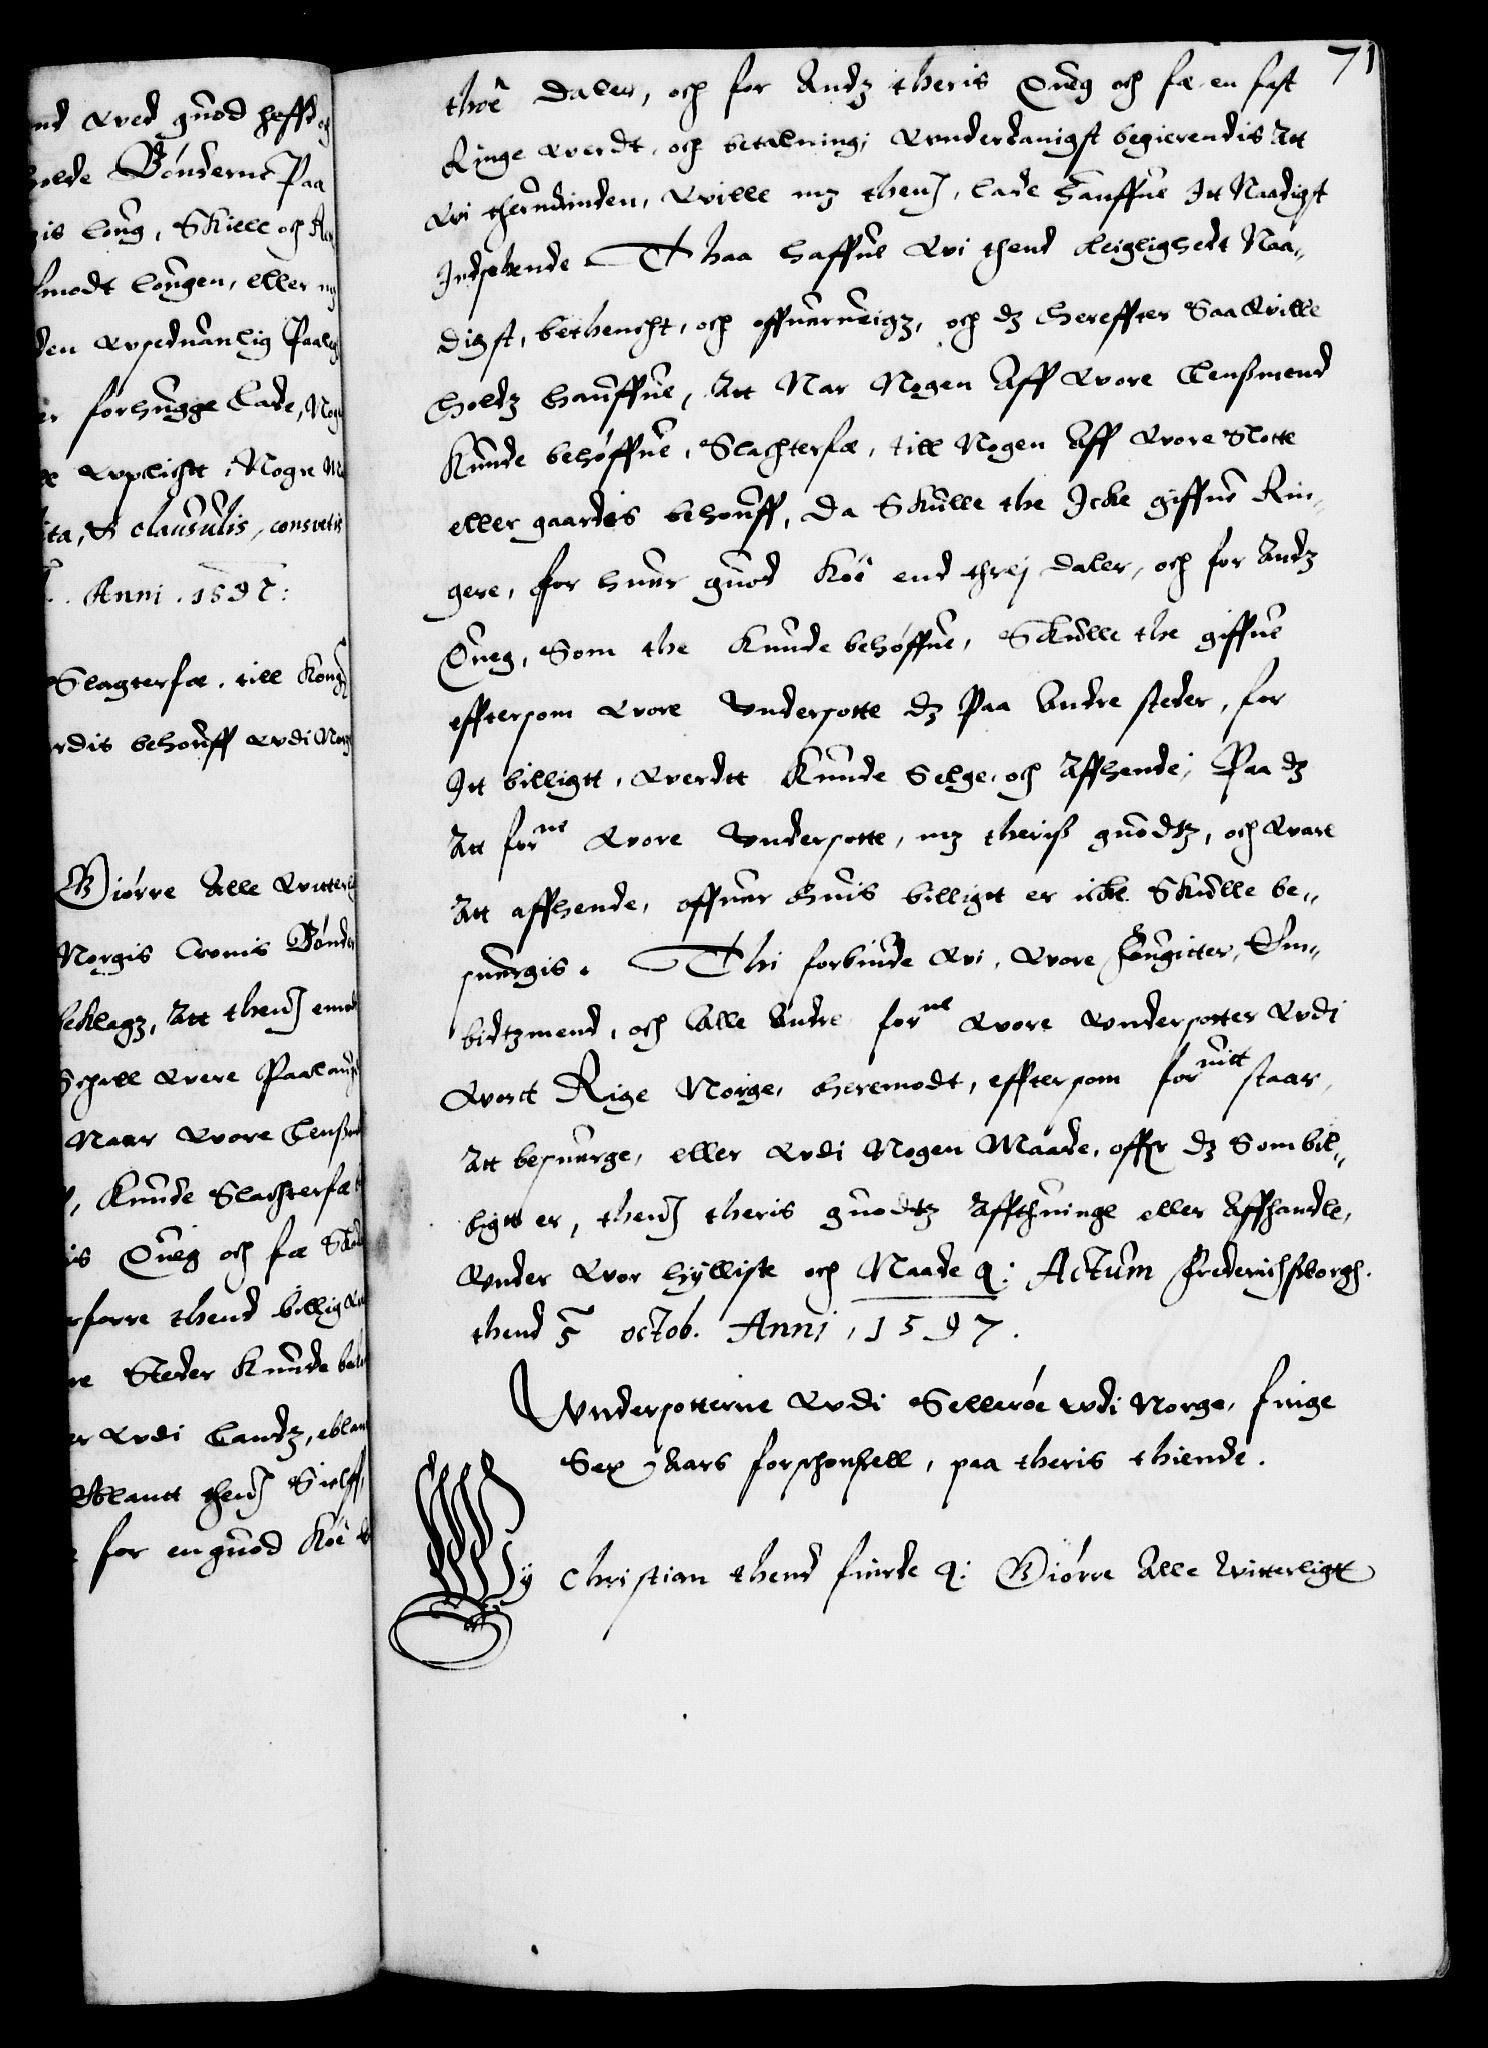 nd wed guod heffd och
holde Bønderne Paa
is loug, Skiell och
imodt lougen, eller
den wsedvanlig Paaleg
er forhugge Lade, Nog
wplichtt, Nogre
ita, & clausulis, consvetis
Anni. 1597:
Slagterfæ, till Kong
rdis behouff wdi Norg
Giørre Alle Witterlig
Norgis Cronis Bønder
beklagz, Att thenom emod
Schall were Paalaugt
Naar wore Lenßmend
Kunde Slachterfæ
is Queg och fæ
forre thend billig
re Steder Kunde
er wdi Landz, eblant
Iblantt thenom Sielff
for en guod Koe
71
thoe daler, och for Andz theris Queg och fæ en fast
Ringe werdt, och betalning, wnderdanigst begierendis Att
wi therudinden, wille mz thenom, lade hauffue Itt Naadigst
Indseende Thaa haffue wi thend leiglighedt Naa„
digst, bethencht, och offuerueigz, och dz hereffter Saa wille
holdz hauffue, Att Nar Nogen Aff wore Lenßmend
Kunde behøffue, Slachterfæ, till Nogen Aff wore Slotte
eller gaardis behouff, da Skulle the Icke giffue Rin„
gere, for huer guod Koe end threj daler, och for Andz
Queg, Som the Kunde behøffue, Skulle the giffue
effttersom wore Undersotte dz Paa Andre steder, for
Itt billigtt, werdtt Kunde Selge, och Affhende, Paa dz
Att forne wore Undersotte, mz theriß guodtz, och ware
Att affhende, offuer huis billigtt er icke Skulle be„
suergis. Thi forbiude wi, wore Fougitter, Em„
bidtzmend, och Alle Andre forne wore wndersotter wdi
wortt Rige Norge, heremodt, efftersom foruitt staar,
Att besuerge, eller wdi Nogen Maade, offr dz Som bil„
ligtt er, thenom theris guodtz Affthuinge eller Affhandle,
wnder wor hylliste och Naade &: Actum Frederichßborgh.
thend 5 octob. Anni, 1597.
Undersotterne wdi Selleröe wdi Norge, finge
Sex Aars forschonsell, paa theris thiende.
Wy Christian thend fierde &: Giørre Alle Witterligtt